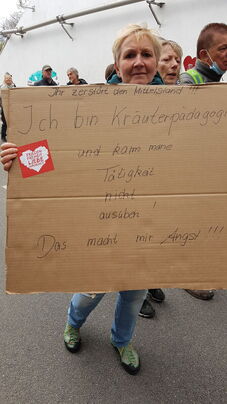 Ihr zerstört den Mittelstand !!!
Ich bin Kräuterpädagogi
und kann meine
Tätigkeit
nicht
ausüben !
Das macht mir Angst !!!
LIEBE